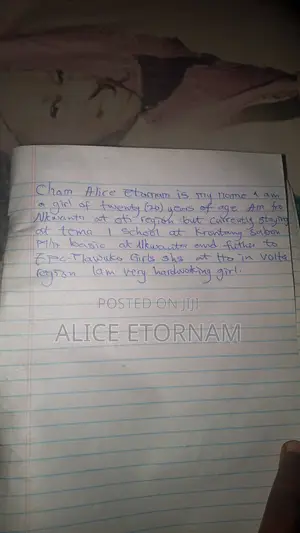 Cham Alice Etornam is my name I am
a girl of twenty (20) years of age Am fro
Nkwanta at oti region but currently staying
at tema I School at Krontang
M/A basic at Nkwanta and futher to
Epc-Mawuko Girls shs at Ho in Volta
region I am very hardwoking girl.
POSTED ON JIJI
ALICE ETORNAM